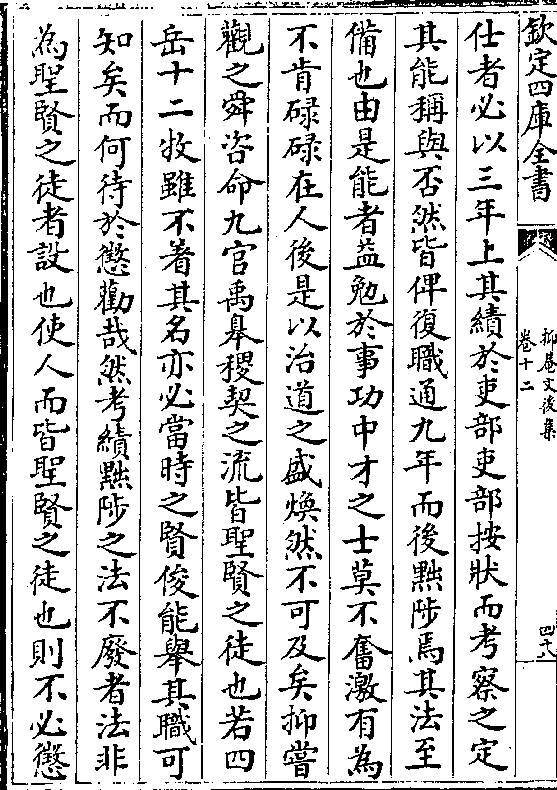 欽定四庫全書
抑菴文後集
卷十二
四十八
仕者必以三年上其績於吏部吏部按狀而考察之定
其能稱與否然皆俾復職通九年而後黜陟焉其法至
備也由是能者益勉於事功中才之士莫不奮激有為
不肯碌碌在人後是以治道之盛煥然不可及矣抑嘗
觀之舜咨命九官禹皋稷契之流皆聖賢之徒也若四
岳十二牧雖不著其名亦必當時之賢俊能舉其職可
知矣而何待於懲勸哉然考績黜陟之法不廢者法非
為聖賢之徒者設也使人而皆聖賢之徒也則不必懲